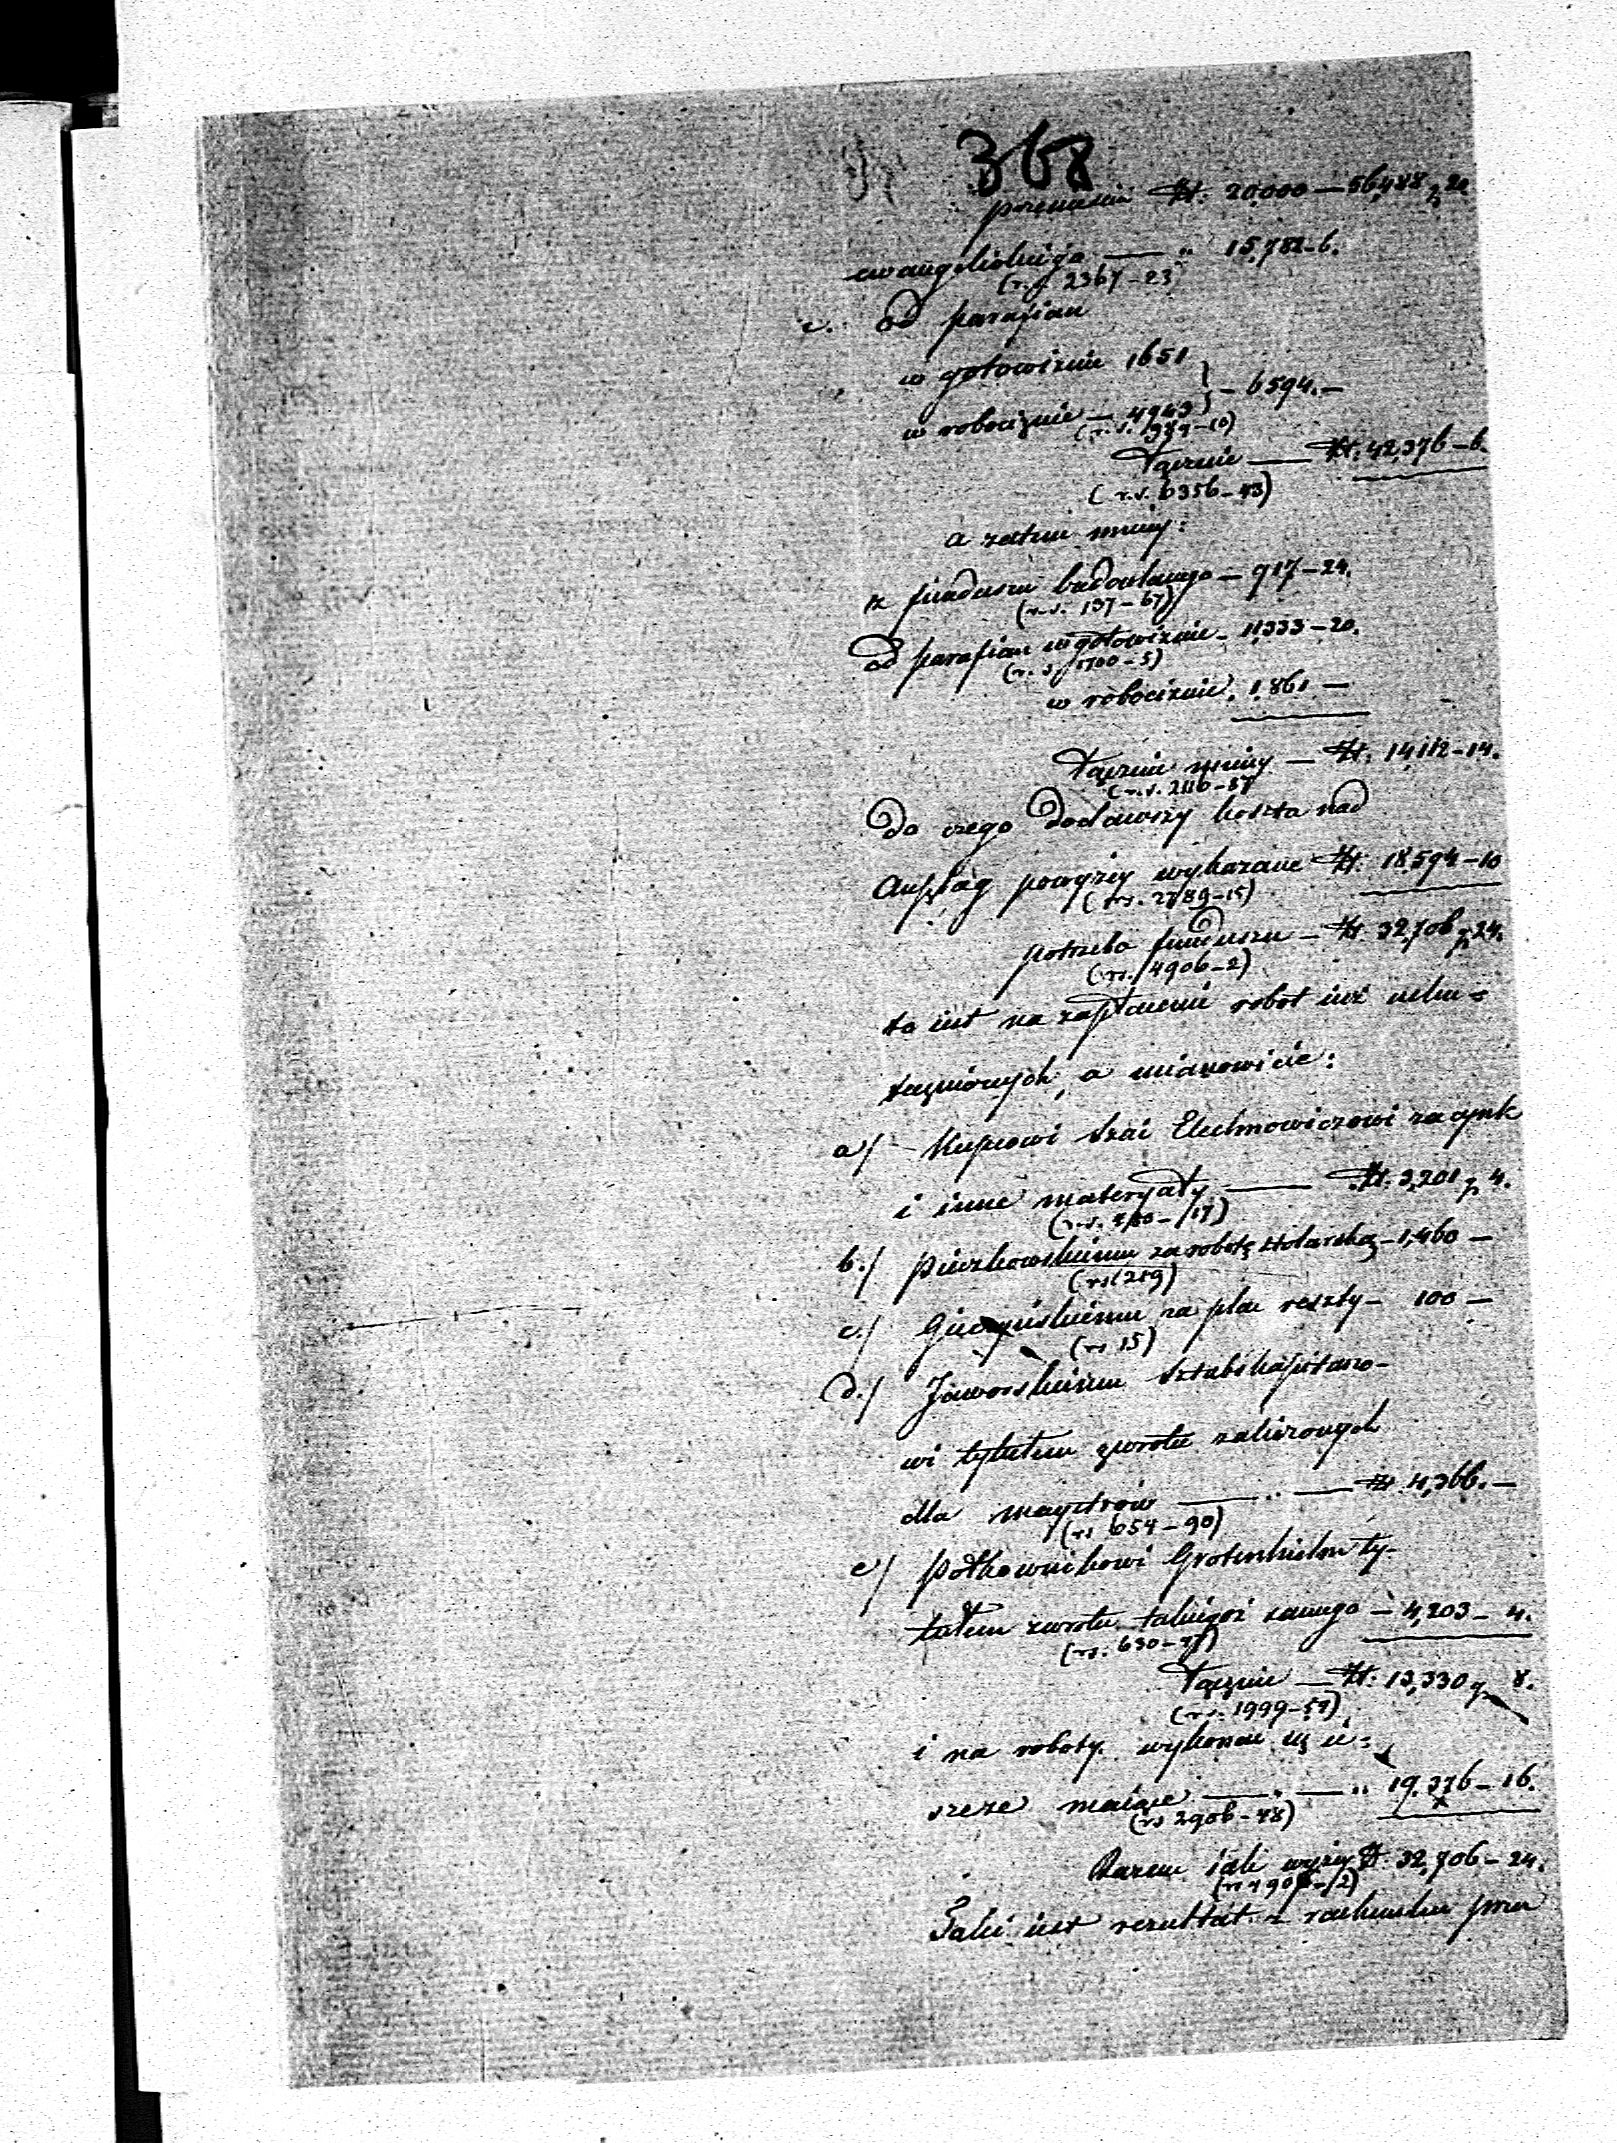 368
przeniesienie Zł. 20,000 — 56,488 g 20
ewangelickiego — " 15,782 - 6.
(r.s. 2367 - 23
c. od parafian
w gotowiznie 1651
w robociznie — 4943 } — 6594. —
(r.s. 989 - 10)
Łącznie — Zł: 42,376 - 6.
(r.s. 6356 - 43)
a zatem mniej:
z funduszu budowlanego — 917 - 24.
(r.s. 137 - 67)
od parafian w gotowiznie - 11,333 - 20.
(r.s. 1700 - 5)
w robociznie. 1,861 —
Łącznie mniej — Zł. 14,112 - 14.
(r.s. 2116 - 87
Do czego dodawszy koszta nad
Anszlag powyżej wykazane Zł. 18,594 - 10
(rs. 2789 - 15)
potrzeba funduszu — Zł. 32,706 g 24.
(rs. 4906 - 2)
to iest na zapłacenie robot iuż usku=
tecznionych, a mianowicie:
a/ Kupcowi Szai Elechnowiczowi za cynk
i inne materyały — Zł. 3,201 g 4.
(r.s. 480 - 17)
b./ Pieczkowskiemu za robotę stolarską - 1,460 —
(rs 219)
c./ za plac reszty - 100 —
(rs 15)
d./ Jaworskiemu Sztabskapitano-
wi tytułem zwrotu zaliczonych
dla maystrów — " — Zł. 4,366. —
(rs 654 - 90)
e/ Połkownikowi ty-
tułem zwrotu takiegoż samego — 4,203 - 4.
(rs. 630 - 47)
Łącznie — Zł: 13,330 g 8.
(r.s. 1999 - 54)
i na roboty wykonać się ie=
szcze maiące — " — " 19,376 - 16.
(rs 2906 - 48)
Razem iak wyżej Zł 32,706 - 24.
(rs 4906 - 2)
Taki iest rezultat z rachunku przez